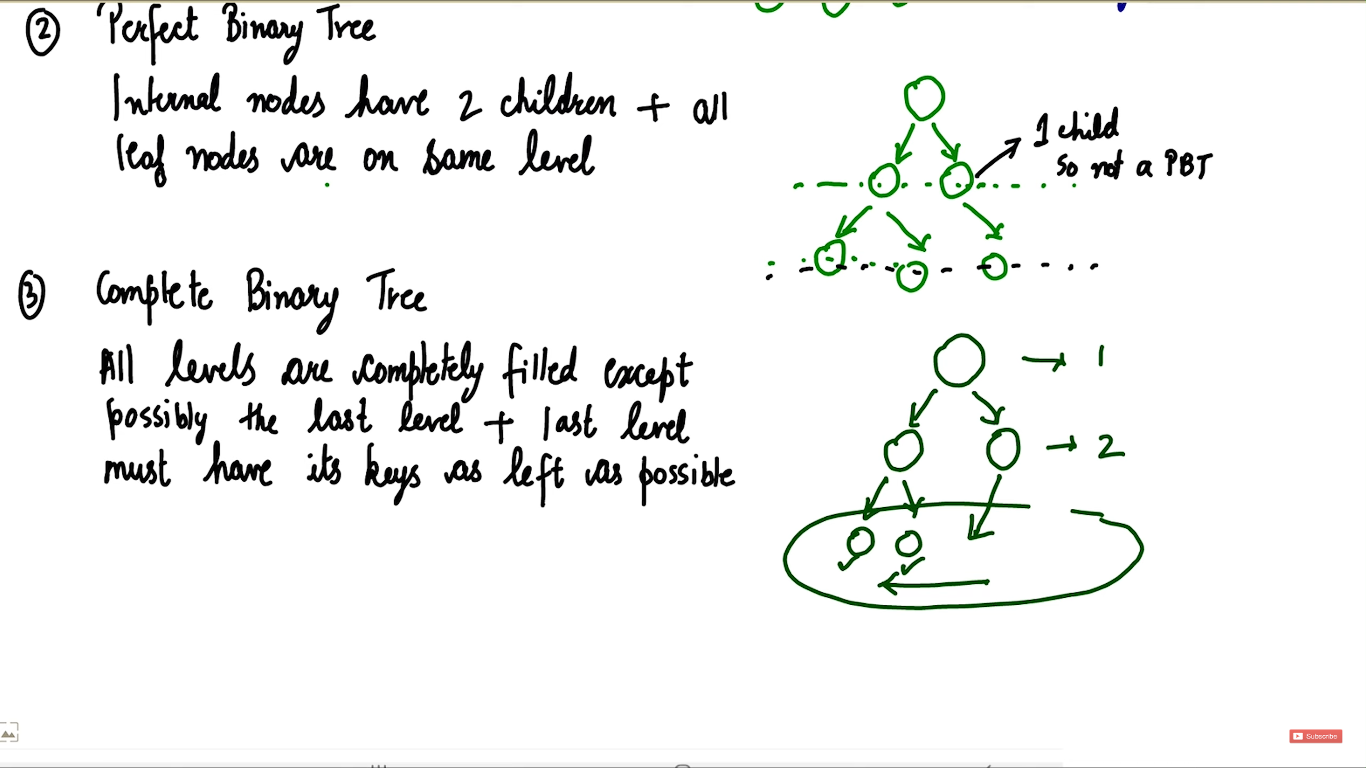 ② Perfect Binary Tree
Internal nodes have 2 children + all
leaf nodes are on same level
1 child
So not a PBT
③ Complete Binary Tree
All levels are completely filled except
possibly the last level + last level
must have its keys as left as possible
→ 1
→ 2
Subscribe